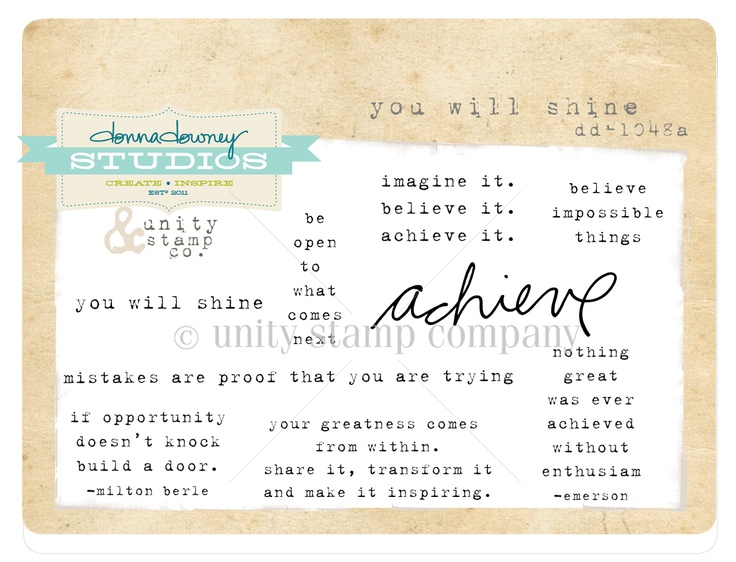 you will shine
dd-1048a
donna downey
STUDIOS
CREATE • INSPIRE
ESTD 2011
&
unity
stamp
co.
be
open
to
what
comes
next
imagine it.
believe it.
achieve it.
believe
impossible
things
you will shine
achieve
© unity stamp company
mistakes are proof that you are trying
nothing
great
was ever
achieved
without
enthusiam
-emerson
if opportunity
doesn't knock
build a door.
-milton berle
your greatness comes
from within.
share it, transform it
and make it inspiring.